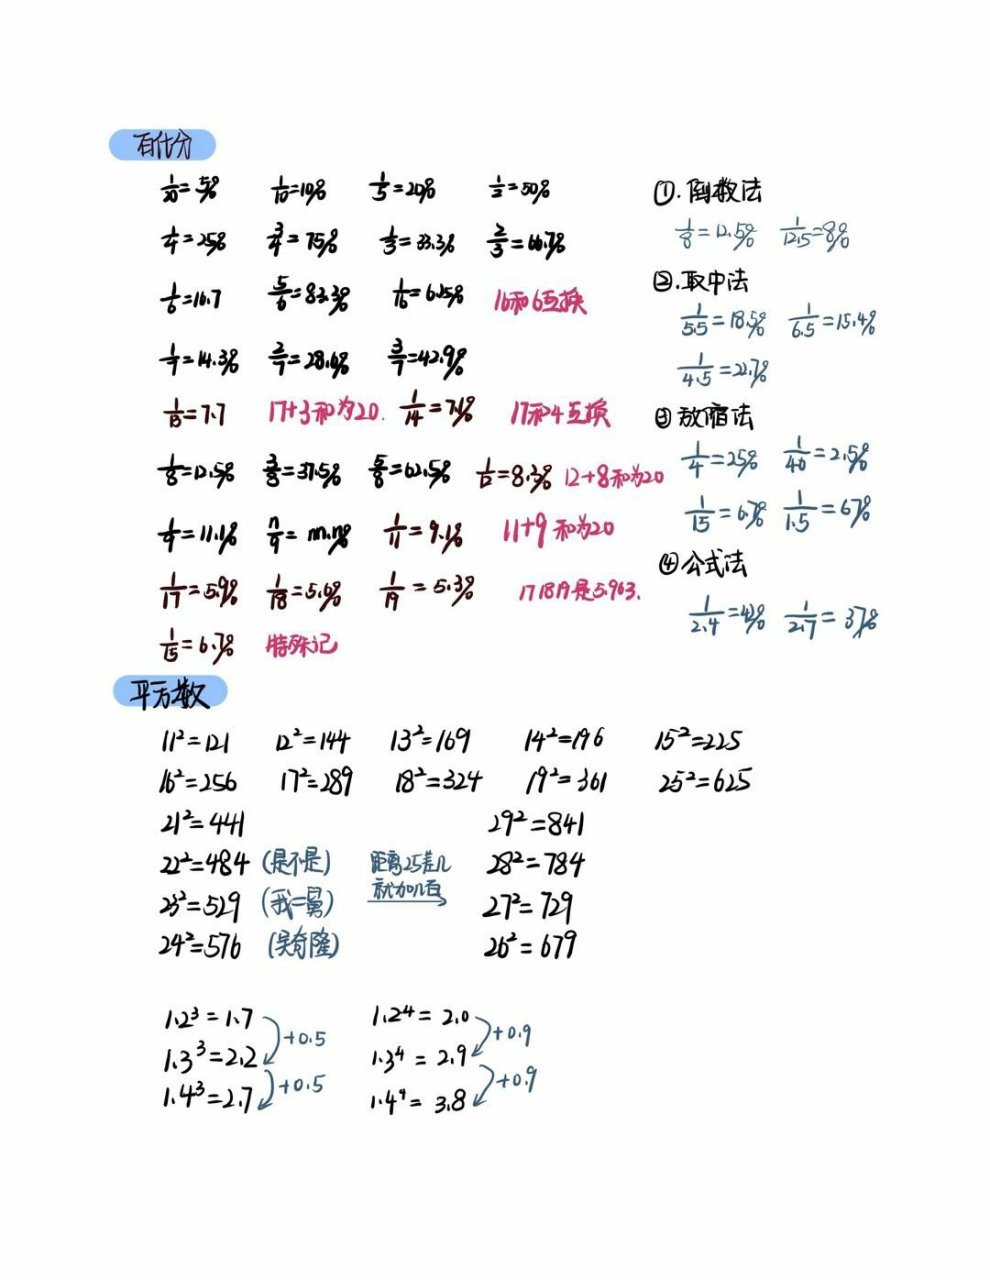 百化分
1/20=5% 1/10=10% 1/5=20% 1/2=50%
1/4=25% 3/4=75% 1/3=33.3% 2/3=66.7%
1/6=16.7 5/6=83.3% 1/16=6.25% 16和6互换
1/7=14.3% 2/7=28.6% 3/7=42.9%
1/13=7.7 17+3和为20. 1/14=7.1% 17和4互换
1/8=12.5% 3/8=37.5% 5/8=62.5% 1/12=8.3% 12+8和为20
1/9=11.1% n/9=n.n% 1/11=9.1% 11+9和为20
1/17=5.9% 1/18=5.6% 1/19=5.3% 17 18 19是5.963.
1/15=6.7% 特殊记
①.倒数法
1/8=12.5% 1/12.5=8%
②.取中法
1/5.5=18.5% 1/6.5=15.4%
1/4.5=22.7%
③放缩法
1/4=25% 1/40=2.5%
1/15=6.7% 1/1.5=67%
④公式法
1/2.4=42% 1/2.7=37%
平方数
11²=121 12²=144 13²=169 14²=196 15²=225
16²=256 17²=289 18²=324 19²=361 25²=625
21²=441 29²=841
22²=484 (是不是) 距离25差几 28²=784
就加几百
23²=529 (我二舅) 27²=729
24²=576 (吴奇隆) 26²=679
1.2³=1.7 1.2⁴=2.0
+0.5 +0.9
1.3³=2.2 1.3⁴=2.9
+0.5 +0.9
1.4³=2.7 1.4⁴=3.8